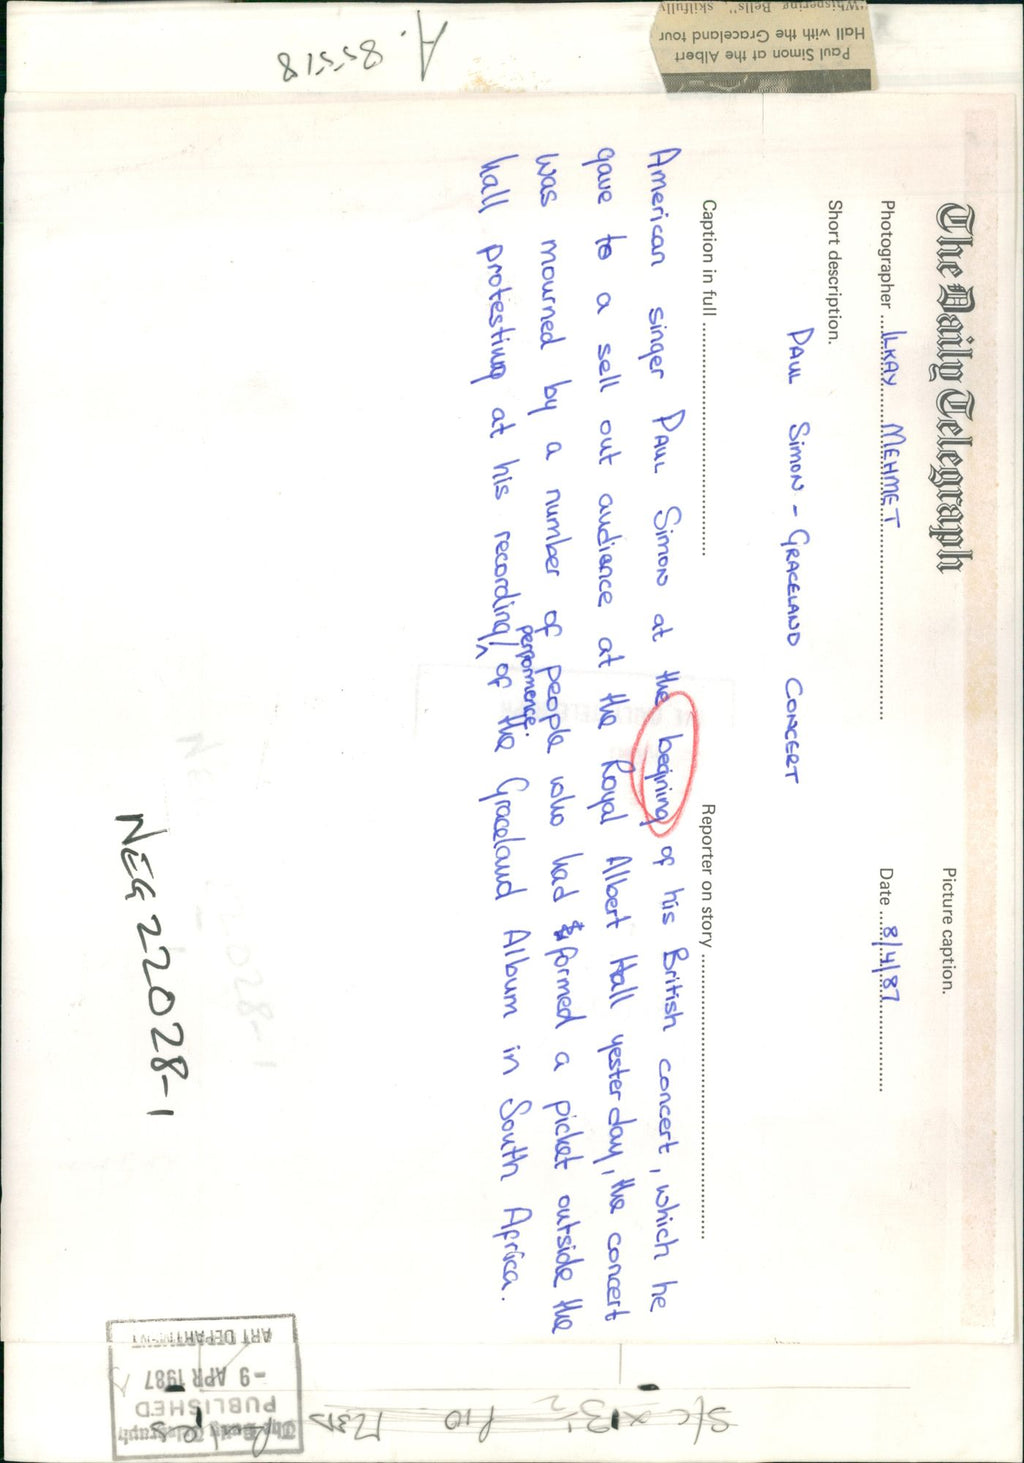 The Daily Telegraph
Picture caption.
Photographer ILKAY MEHMET
Date 8/4/87
Short description.
PAUL SIMON - GRACELAND CONCERT
Caption in full
Reporter on story
American singer PAUL SIMON at the begining of his British concert, which he
gave to a sell out audience at the Royal Albert Hall yesterday, the concert
was mourned by a number of people who had formed a picket outside the
performence.
hall protesting at his recording/ of the Graceland Album in South Africa.
NEG 22028-1
A. 85518
Paul Simon at the Albert
Hall with the Graceland tour
"Whispering Bells", skilfully
The Daily Telegraph
PUBLISHED
-9 APR 1987
ART DEPARTMENT
S/C x 13½ P10